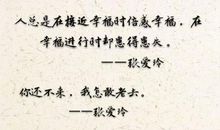 人总是在接近幸福时倍感幸福，在
幸福进行时却患得患失。
——张爱玲
你还不来，我怎敢老去。
——张爱玲